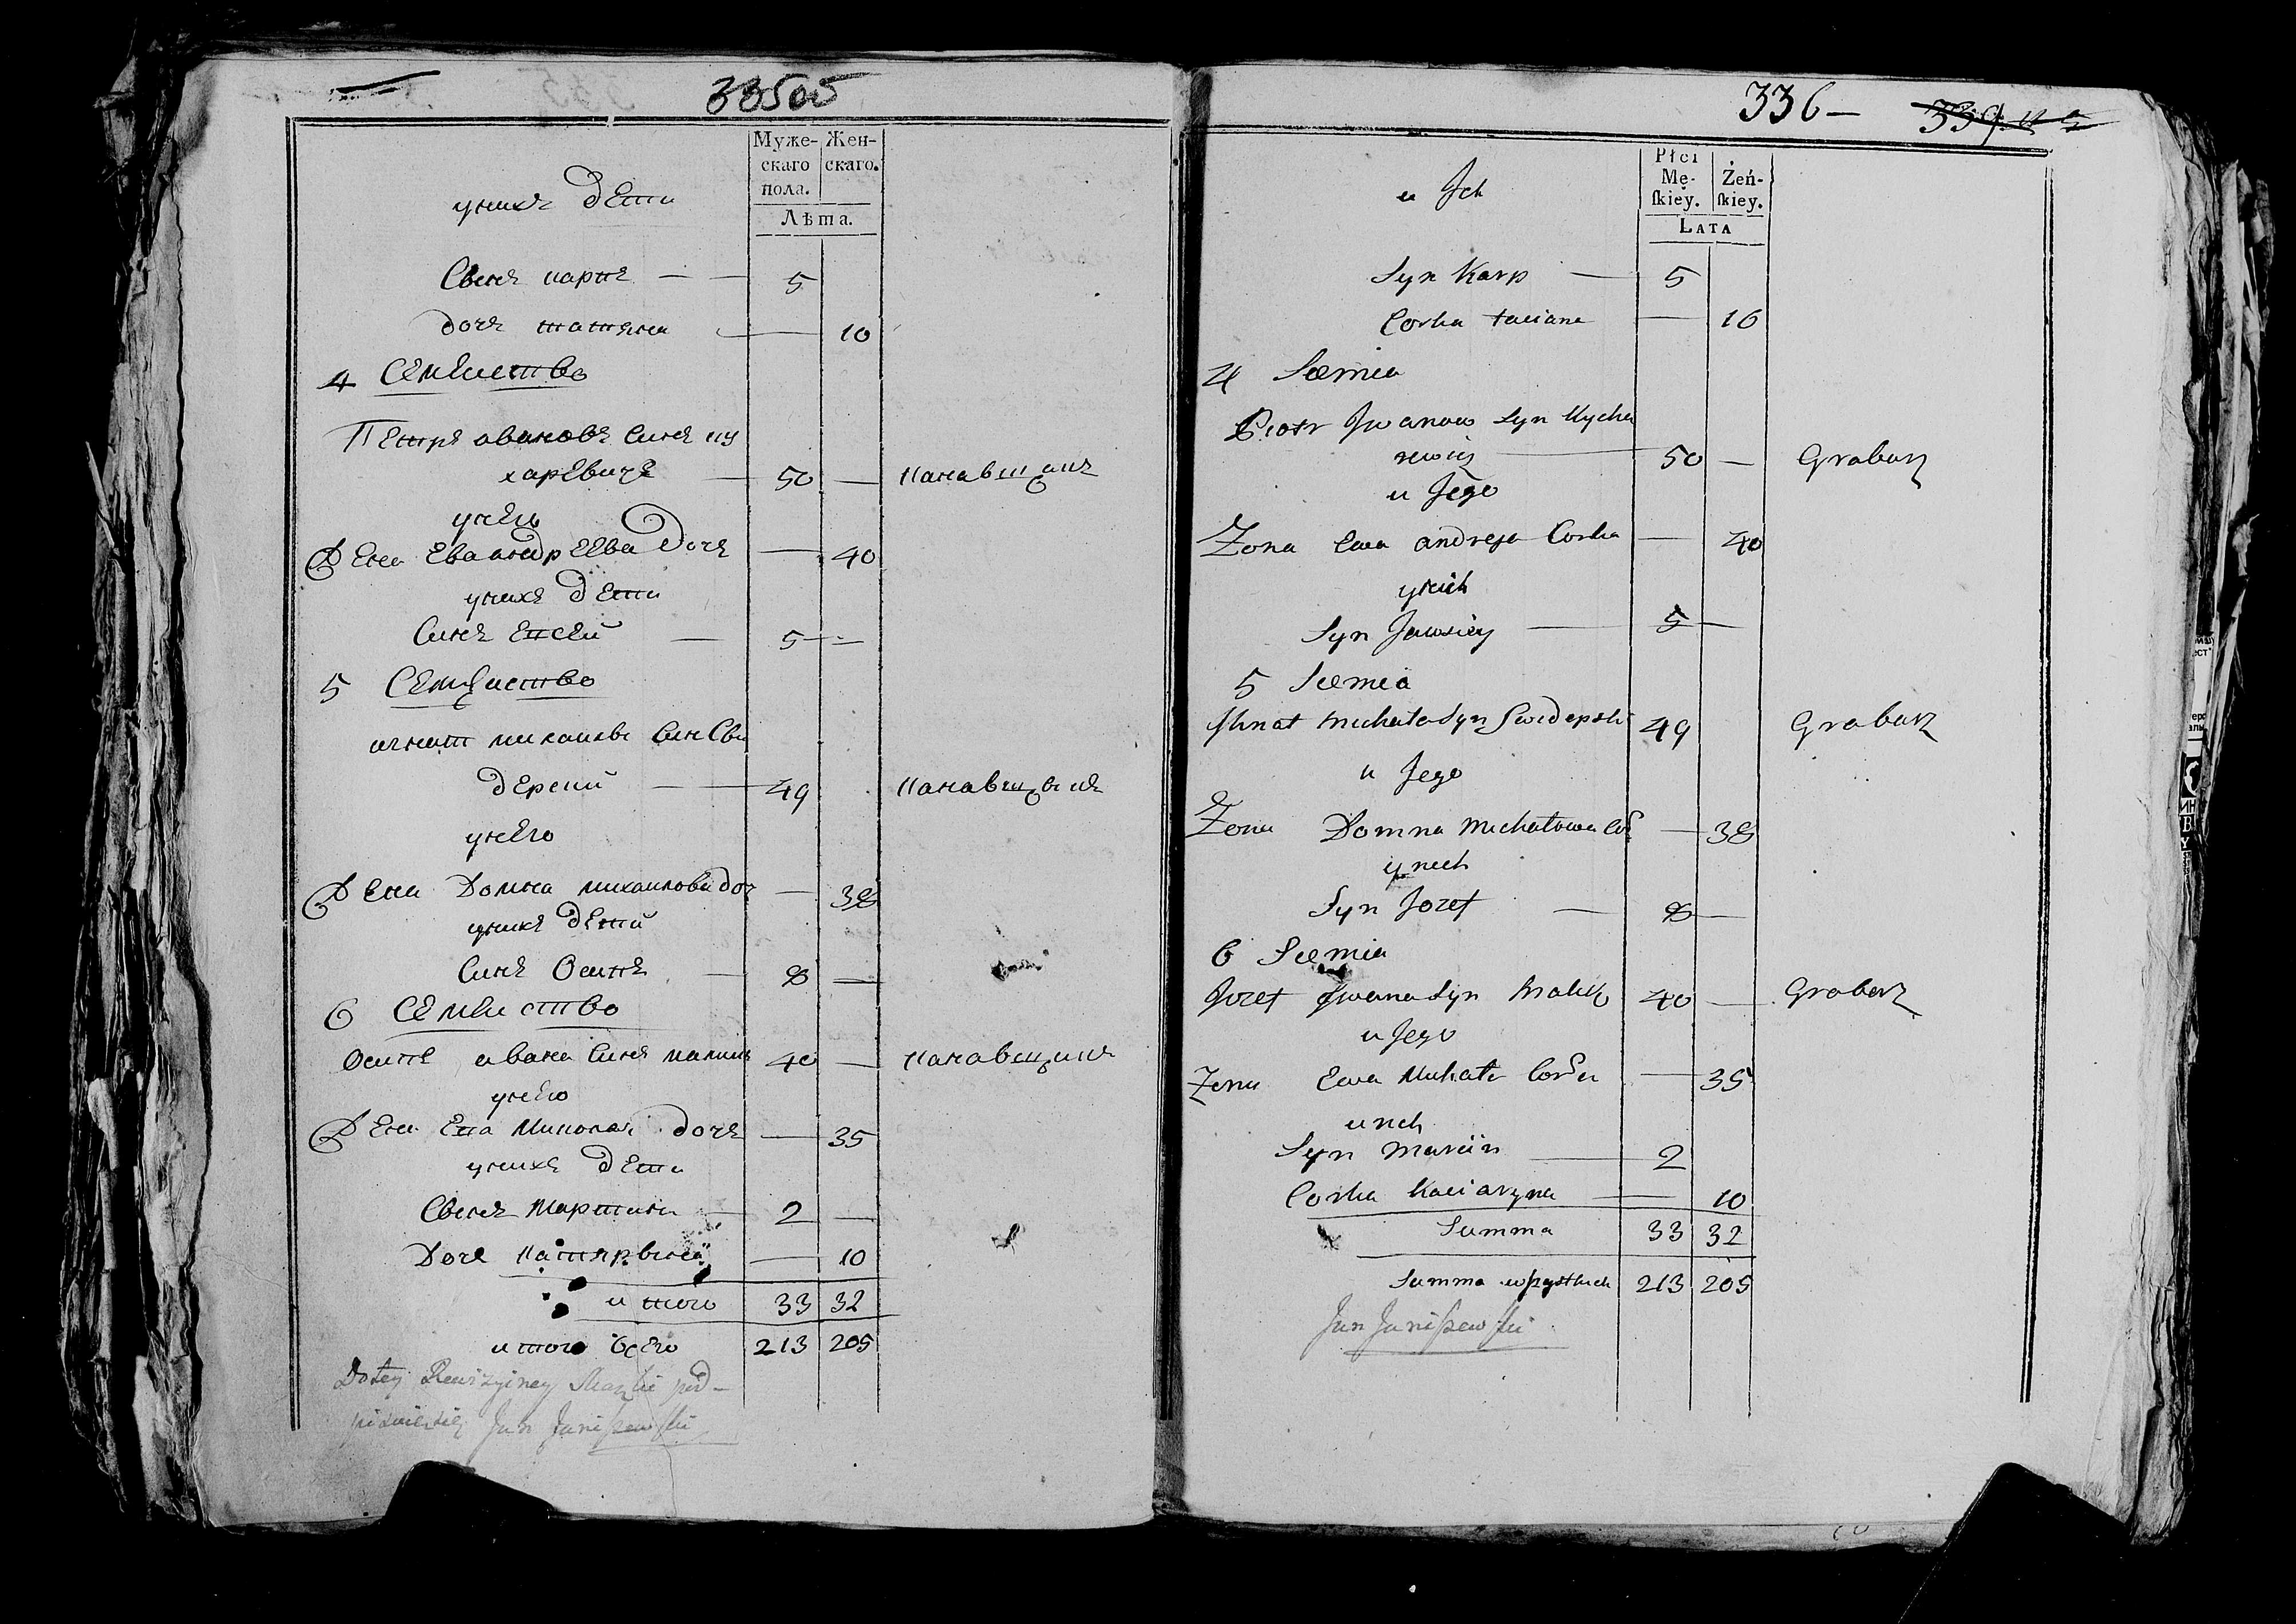 335об
Муже-
скаго
пола.
Жен-
скаго.
Лѣта.
унихъ дети
Сынъ карпъ 5
дочъ татяна 10
4 Семейство
Петръ ивановъ синъ ку
харевичъ 50 канавщикъ
унего
Жена Ева андреева дочъ 40
унихъ дети
Синъ 5
5 Семейство
игнат михаилов син Сви
дерский 49 канавщикъ
унего
Жена Домна михаилова доч 38
унихъ дети
Синъ Осипъ 8
6 Семейство
Осипъ ивана синъ 40 канавщикъ
унего
Жена Ева дочъ 35
унихъ дети
Сынъ Мартинъ 2
Дочъ катярына 10
итого 33 32
итого всего 213 205
Do tey Rewizyiney Skazki pod-
Jan Janiszewski
336 –
Płci
Mę-
skiey.
Żeń-
skiey.
LATA
u Ich
Syn Karp 5
Corka taciana 10
4 Siemia
Piotr Iwanow syn Kucha
rewicz 50 Grabarz
u Jego
Zona Ewa andreja Corka 40
unich
Syn Jawsiey 5
5 Siemia
Ihnat Michała Syn Swiderski 49 Grabarz
u Jego
Zona Domna Michałowa Cor 38
unich
Syn Jozef 8
6 Siemia
Jozef Iwana Syn 40 Grabarz
u Jego
Zona Ewa Corka 35
unich
Syn Marcin 2
Corka Kaciaryna 10
Summa 33 32
Summa wszystkich 213 205
Jan Janiszewski